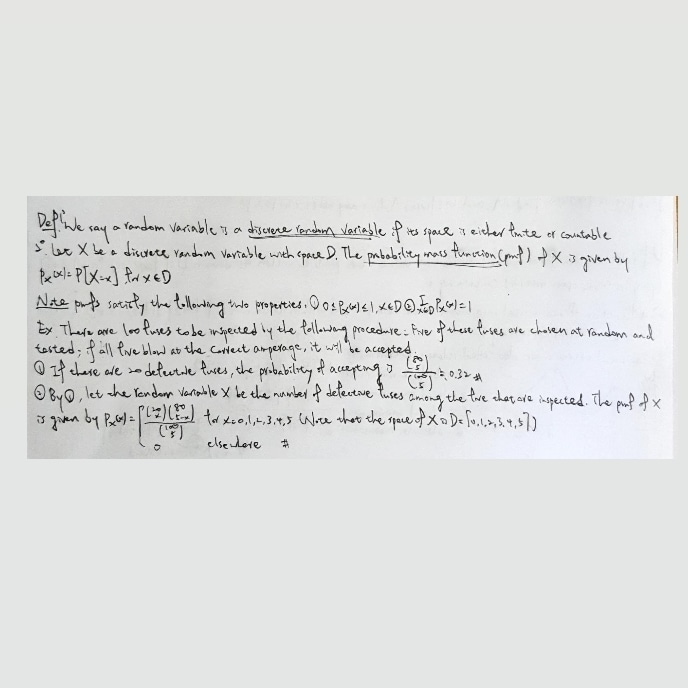 Def. 4° We say a random variable is a discrete random variable if its space is either finite or countable
5° Let X be a discrete random variable with space D. The probability mass function (pmf) of X is given by
Pₓ(x) = P[X=x] for x∈D
Note pmfs satisfy the following two properties. ① 0≤Pₓ(x)≤1, x∈D ② Σ_{x∈D} Pₓ(x)=1
Ex. There are 100 fuses to be inspected by the following procedure: Five of these fuses are chosen at random and
tested; if all five blow at the correct amperage, it will be accepted.
① If there are 20 defective fuses, the probability of accepting is (80 5)/(100 5) ≒ 0.32 #
② By ①, let the random variable X be the number of defective fuses among the five that are inspected. The pmf of X
is given by Pₓ(x) = { (20 x)(80 5-x)/(100 5) for x=0,1,2,3,4,5 (Note that the space of X is D={0,1,2,3,4,5})
0 elsewhere #